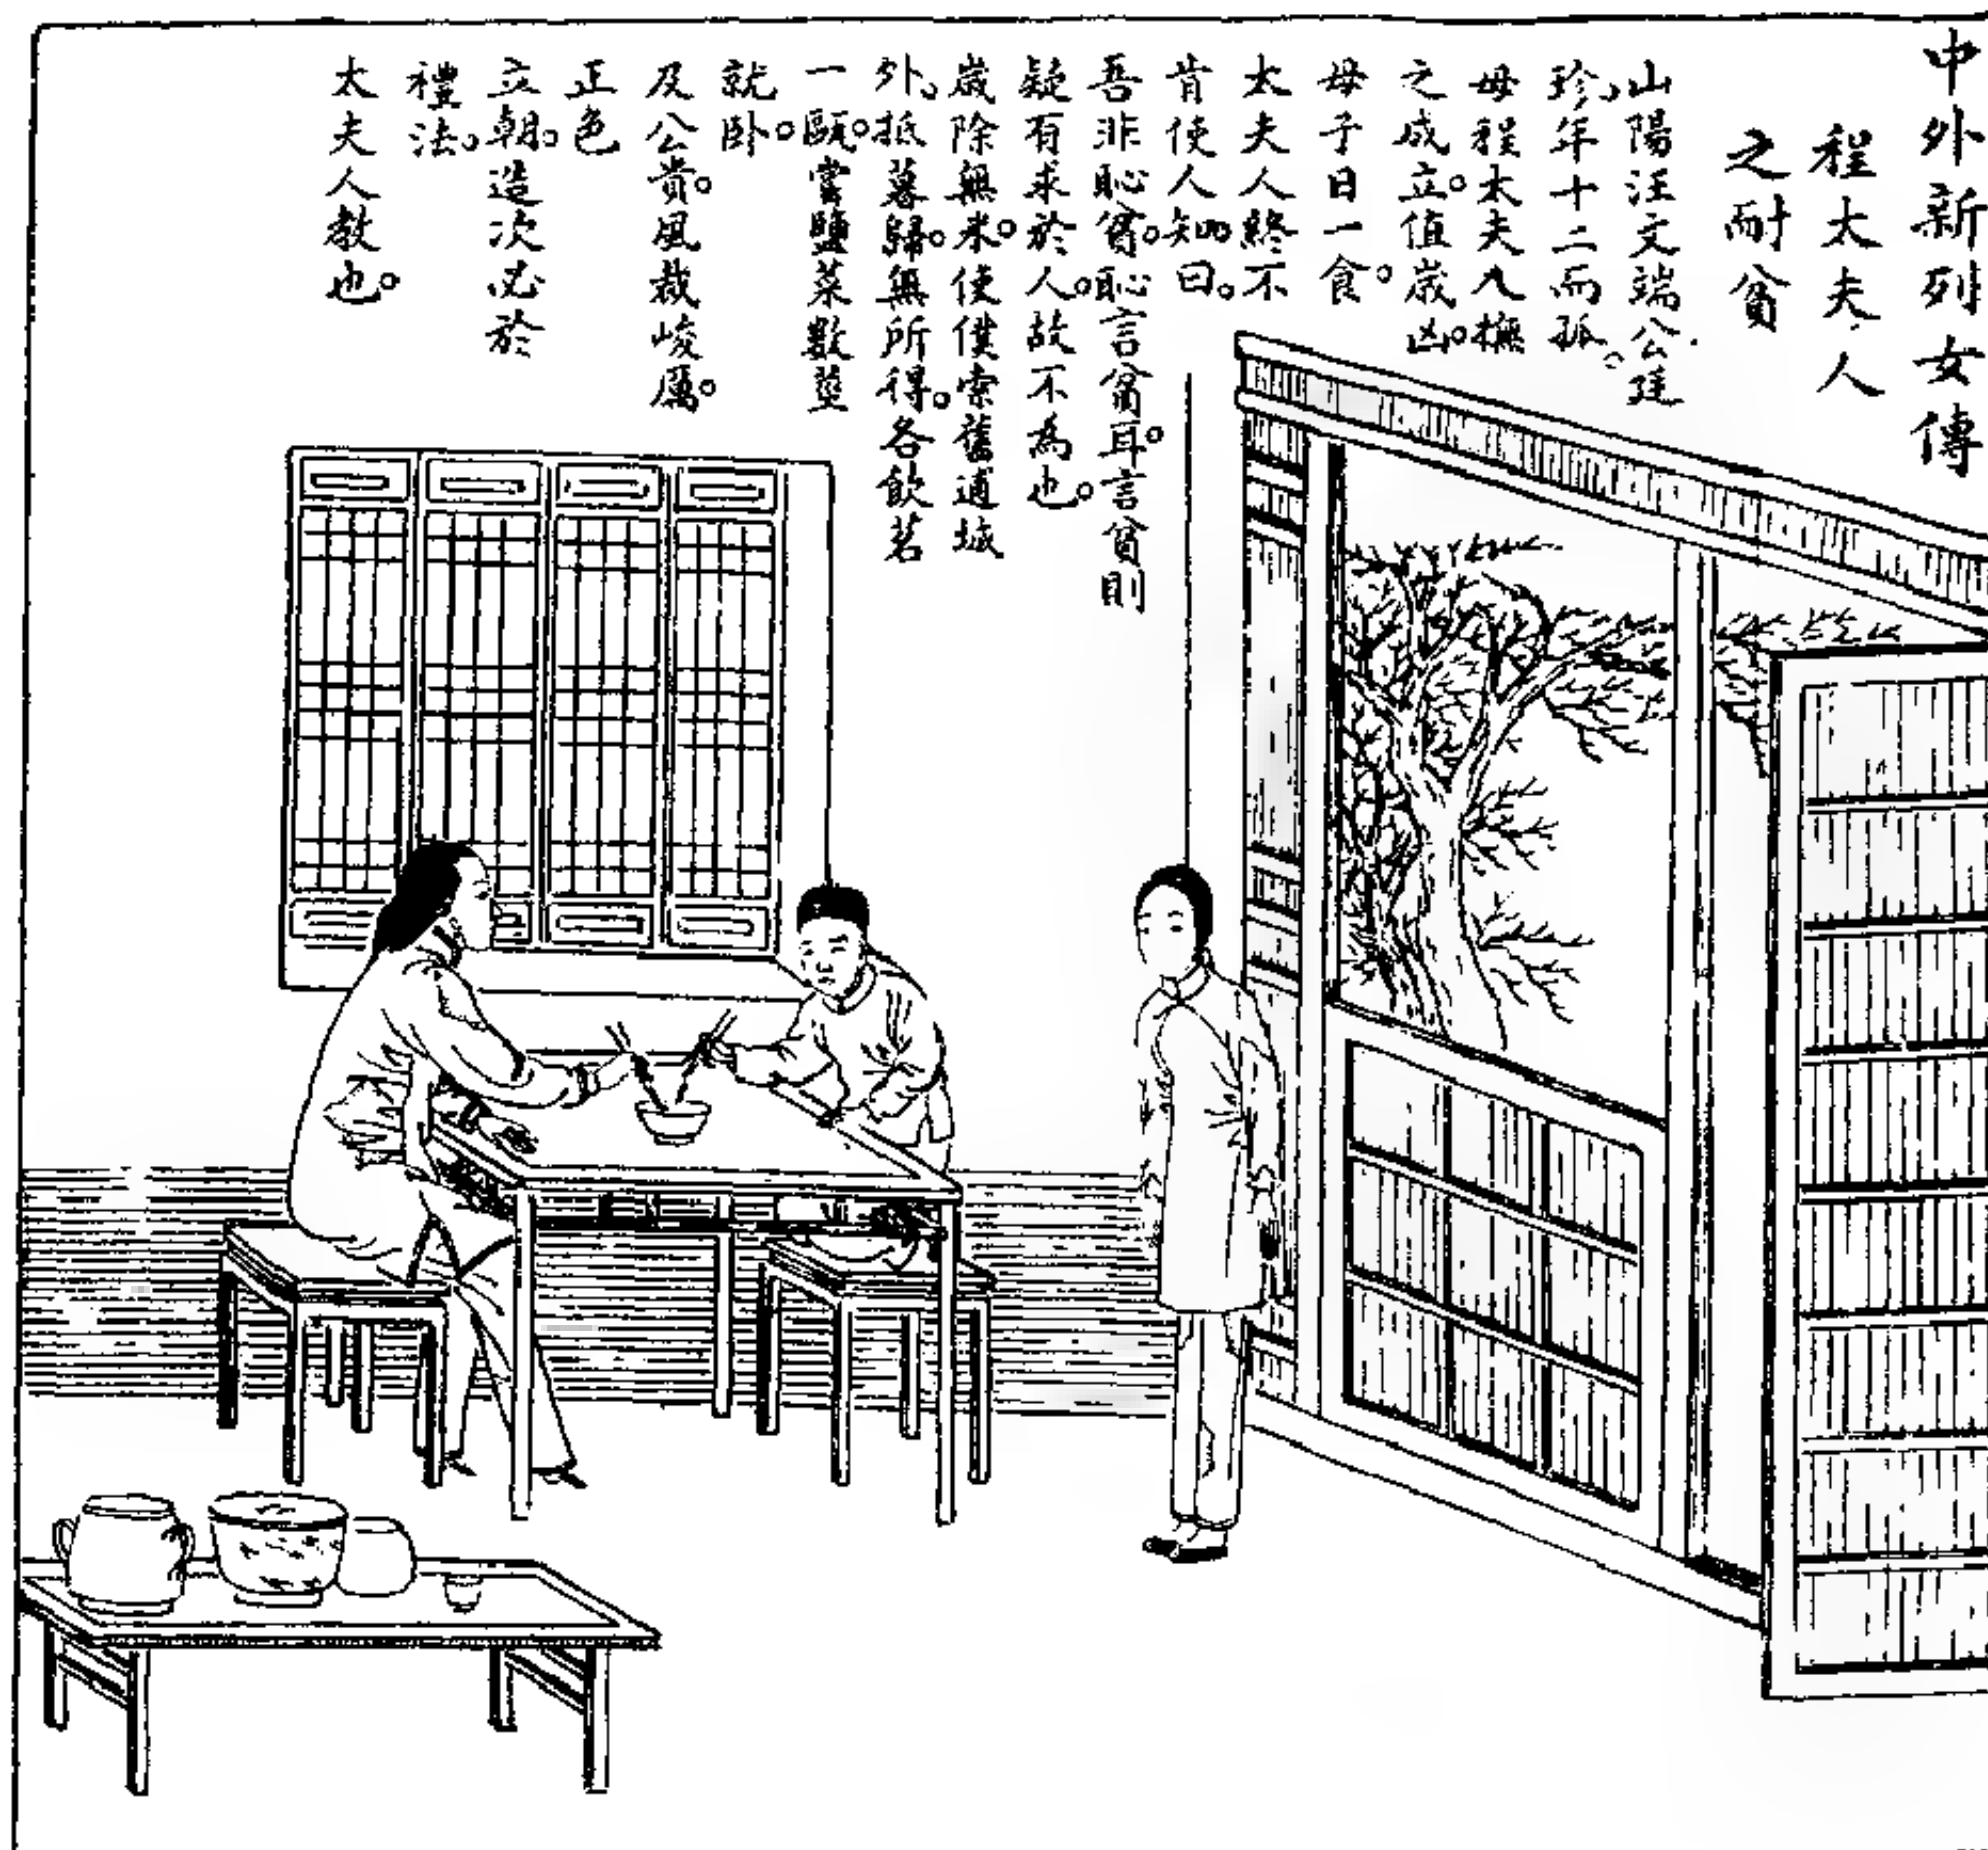 中外新列女傳
程太夫人
之耐貧
山陽汪文端公廷
珍、年十二而孤。
母程太夫人撫
之成立。值歲凶。
母子日一食。
太夫人終不
肯使人知。曰。
吾非恥貧。恥言貧耳。言貧則
疑有求於人。故不為也。
歲除無米。使僕索舊逋城
外、抵暮歸。無所得。各飲茗
一甌。嘗鹽菜數莖
就臥。
及公貴。風裁峻厲。
正色
立朝。造次必於
禮法、
太夫人教也。